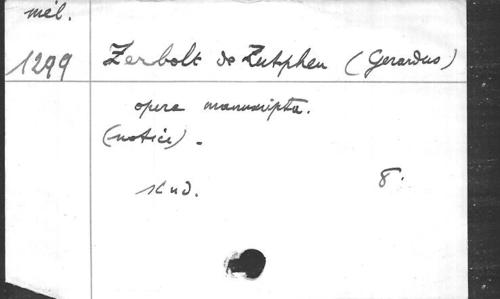 mél.
1299 Zerbolt de Zutphen (Gerardus)
opera manuscripta.
(notice).
s l n d. 8.